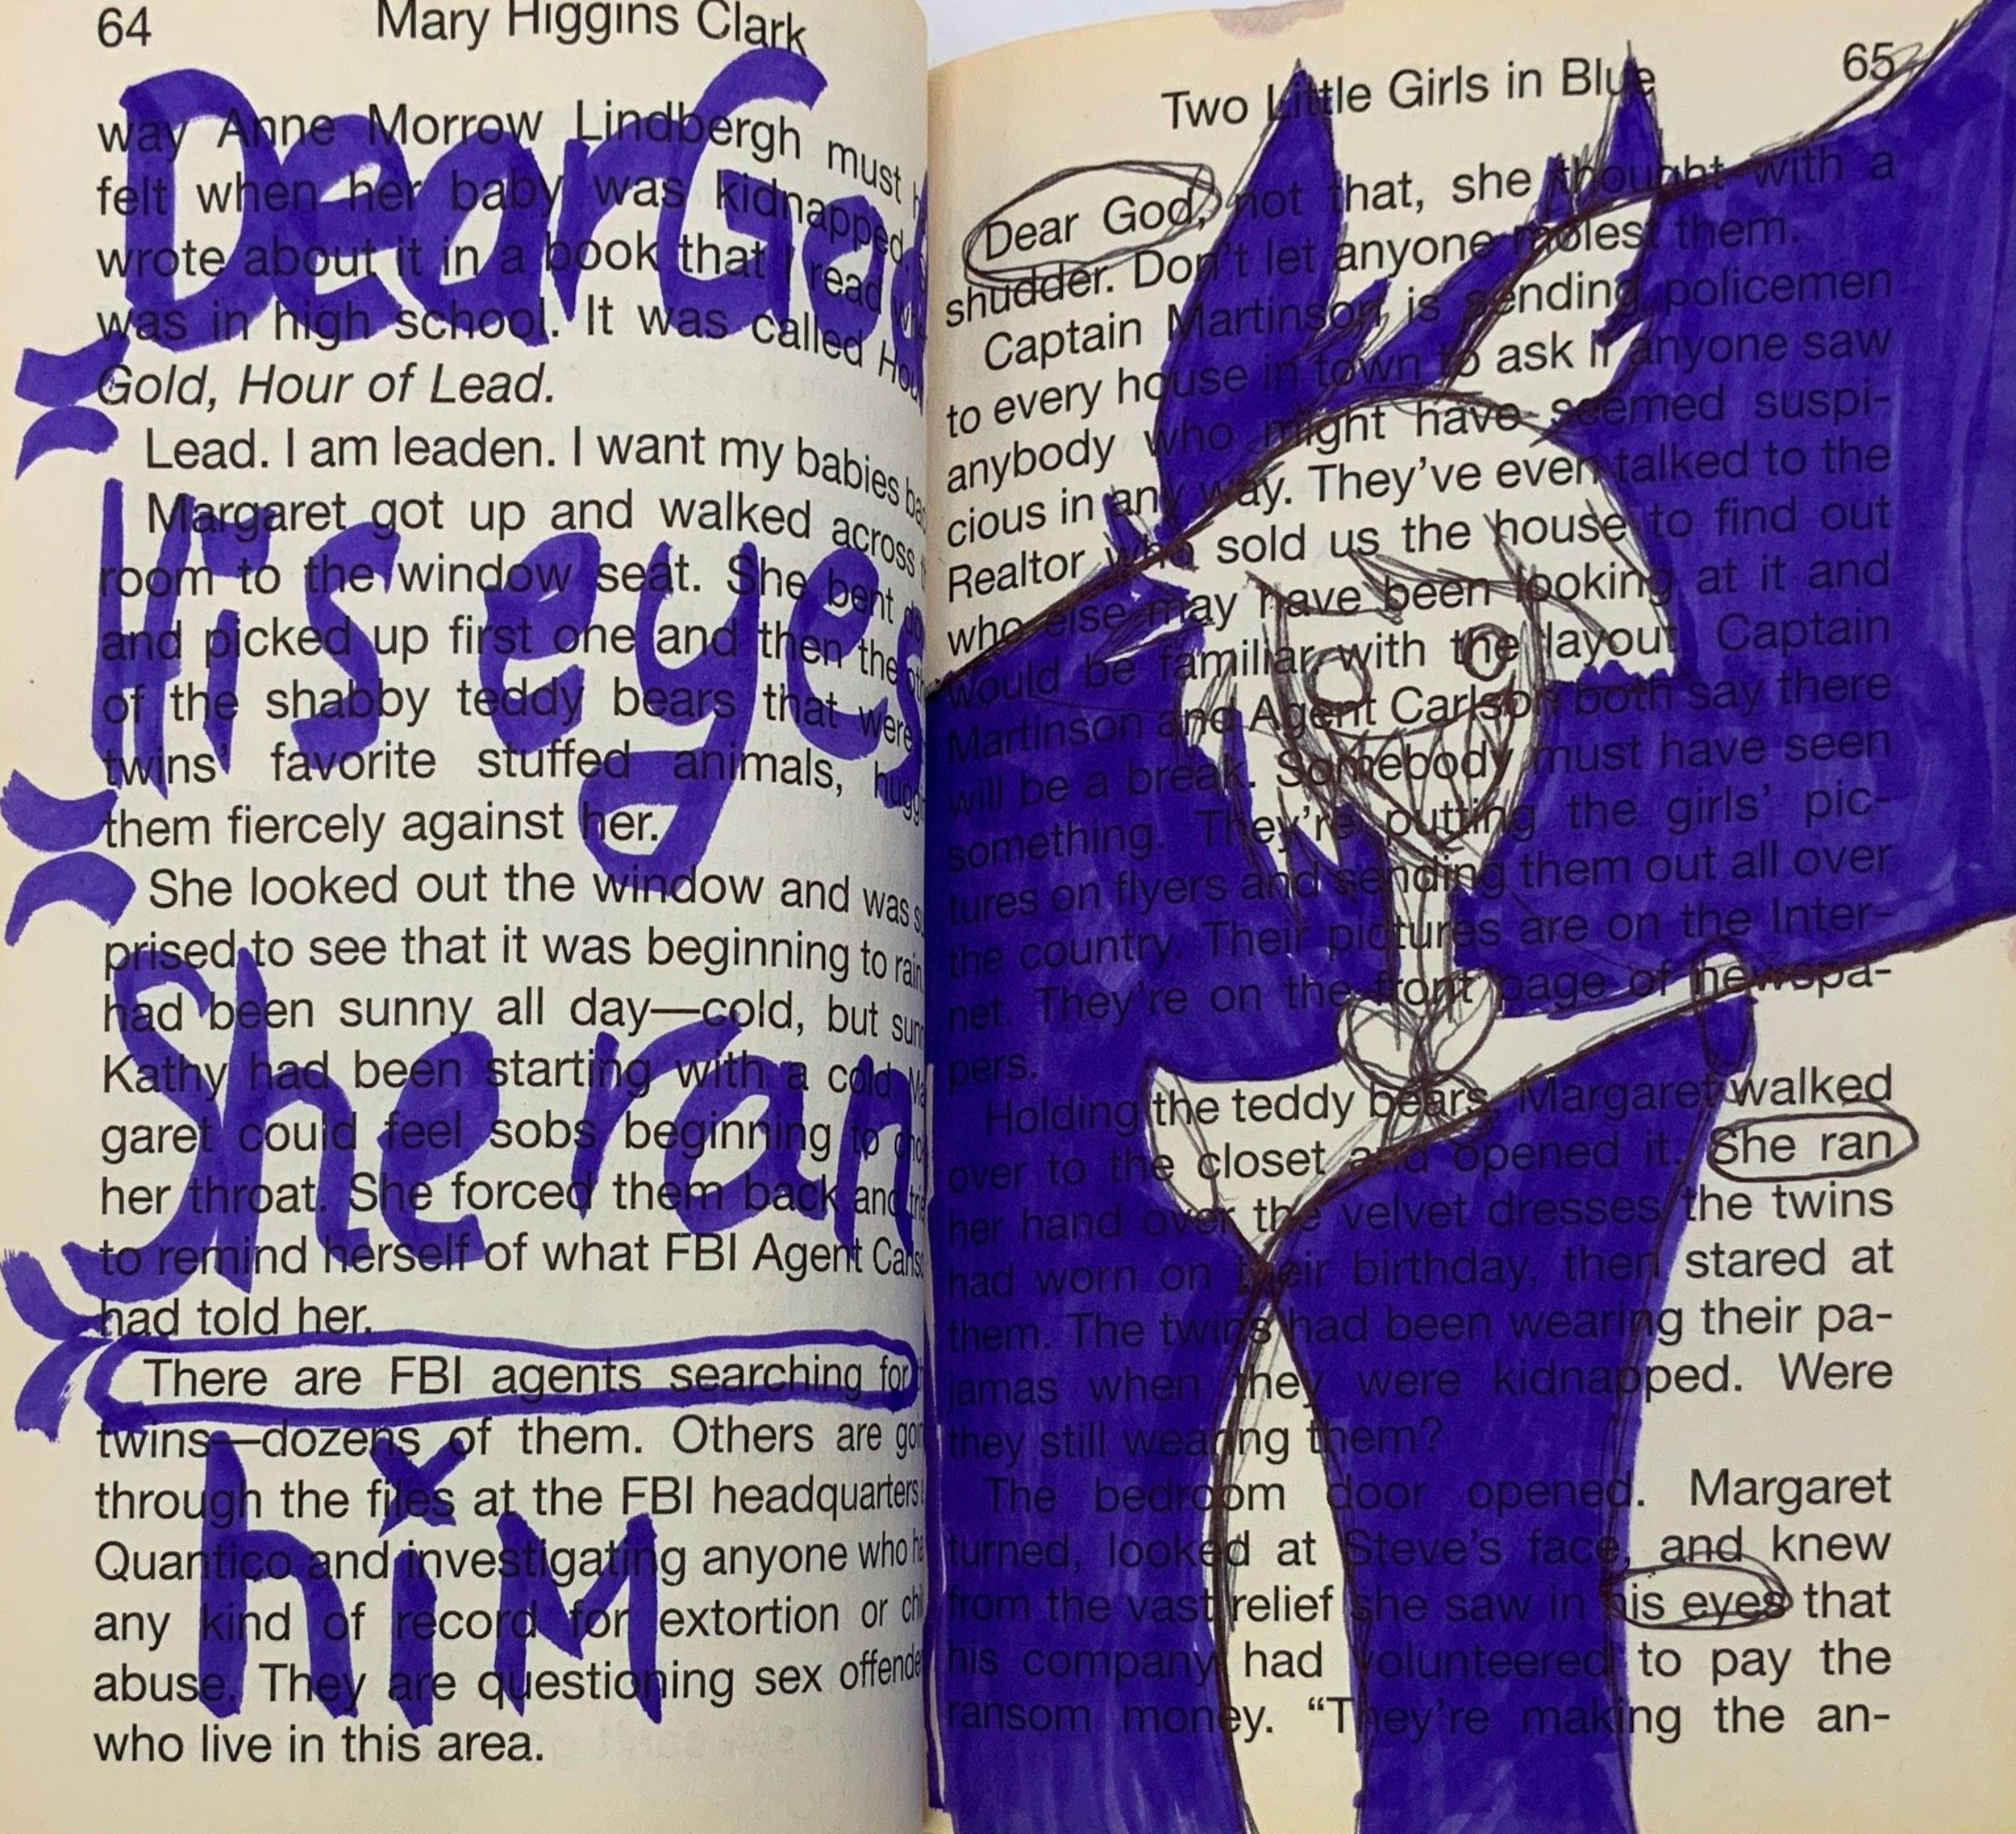 64
Mary Higgins Clark
way Anne Morrow Lindbergh must
felt when her baby was kidnapped.
wrote about it in a book that I read
was in high school. It was called
Gold, Hour of Lead.
Lead. I am leaden. I want my babies
Margaret got up and walked across
room to the window seat. She bent
and picked up first one and then the
of the shabby teddy bears that were
twins' favorite stuffed animals,
them fiercely against her.
She looked out the window and was
prised to see that it was beginning to rain
had been sunny all day—cold, but
Kathy had been starting with a cold.
garet could feel sobs beginning to
her throat. She forced them back and
to remind herself of what FBI Agent
had told her.
There are FBI agents searching for
twins—dozens of them. Others are
through the files at the FBI headquarters
Quantico and investigating anyone who
any kind of record for extortion or
abuse. They are questioning sex
who live in this area.
Dear God
His eyes
She ran
him
Two Little Girls in Blue
65
Dear God, not that, she thought with a
shudder. Don't let anyone molest them.
Captain Martinson is sending policemen
to every house in town to ask if anyone saw
anybody who might have seemed suspi-
cious in any way. They've even talked to the
Realtor who sold us the house to find out
who else may have been looking at it and
would be familiar with the layout. Captain
Martinson and Agent Carlson both say there
will be a break. Somebody must have seen
something. They're putting the girls' pic-
tures on flyers and sending them out all over
the country. Their pictures are on the Inter-
net. They're on the front page of newspa-
pers.
Holding the teddy bears, Margaret walked
over to the closet and opened it. She ran
her hand over the velvet dresses the twins
had worn on their birthday, then stared at
them. The twins had been wearing their pa-
jamas when they were kidnapped. Were
they still wearing them?
The bedroom door opened. Margaret
turned, looked at Steve's face, and knew
from the vast relief she saw in his eyes that
his company had volunteered to pay the
ransom money. “They're making the an-